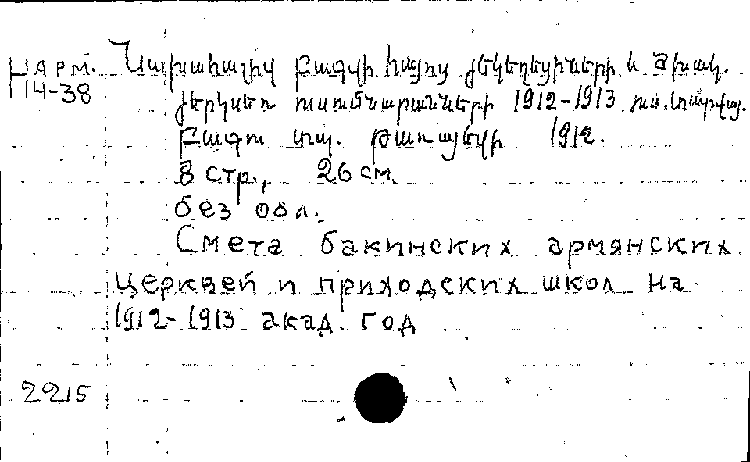 Нарм. Նախահաշիվ Բագվի հայոց եկեղեցիների և ծխակ.
14-38 երկսեռ ուսումնարանների 1912-1913 ուս.
Բագու տպ. 1912.
8 стр., 26 см
без обл.
Смета бакинских армянских
церквей и приходских школ на
1912-1913 акад. год
2215